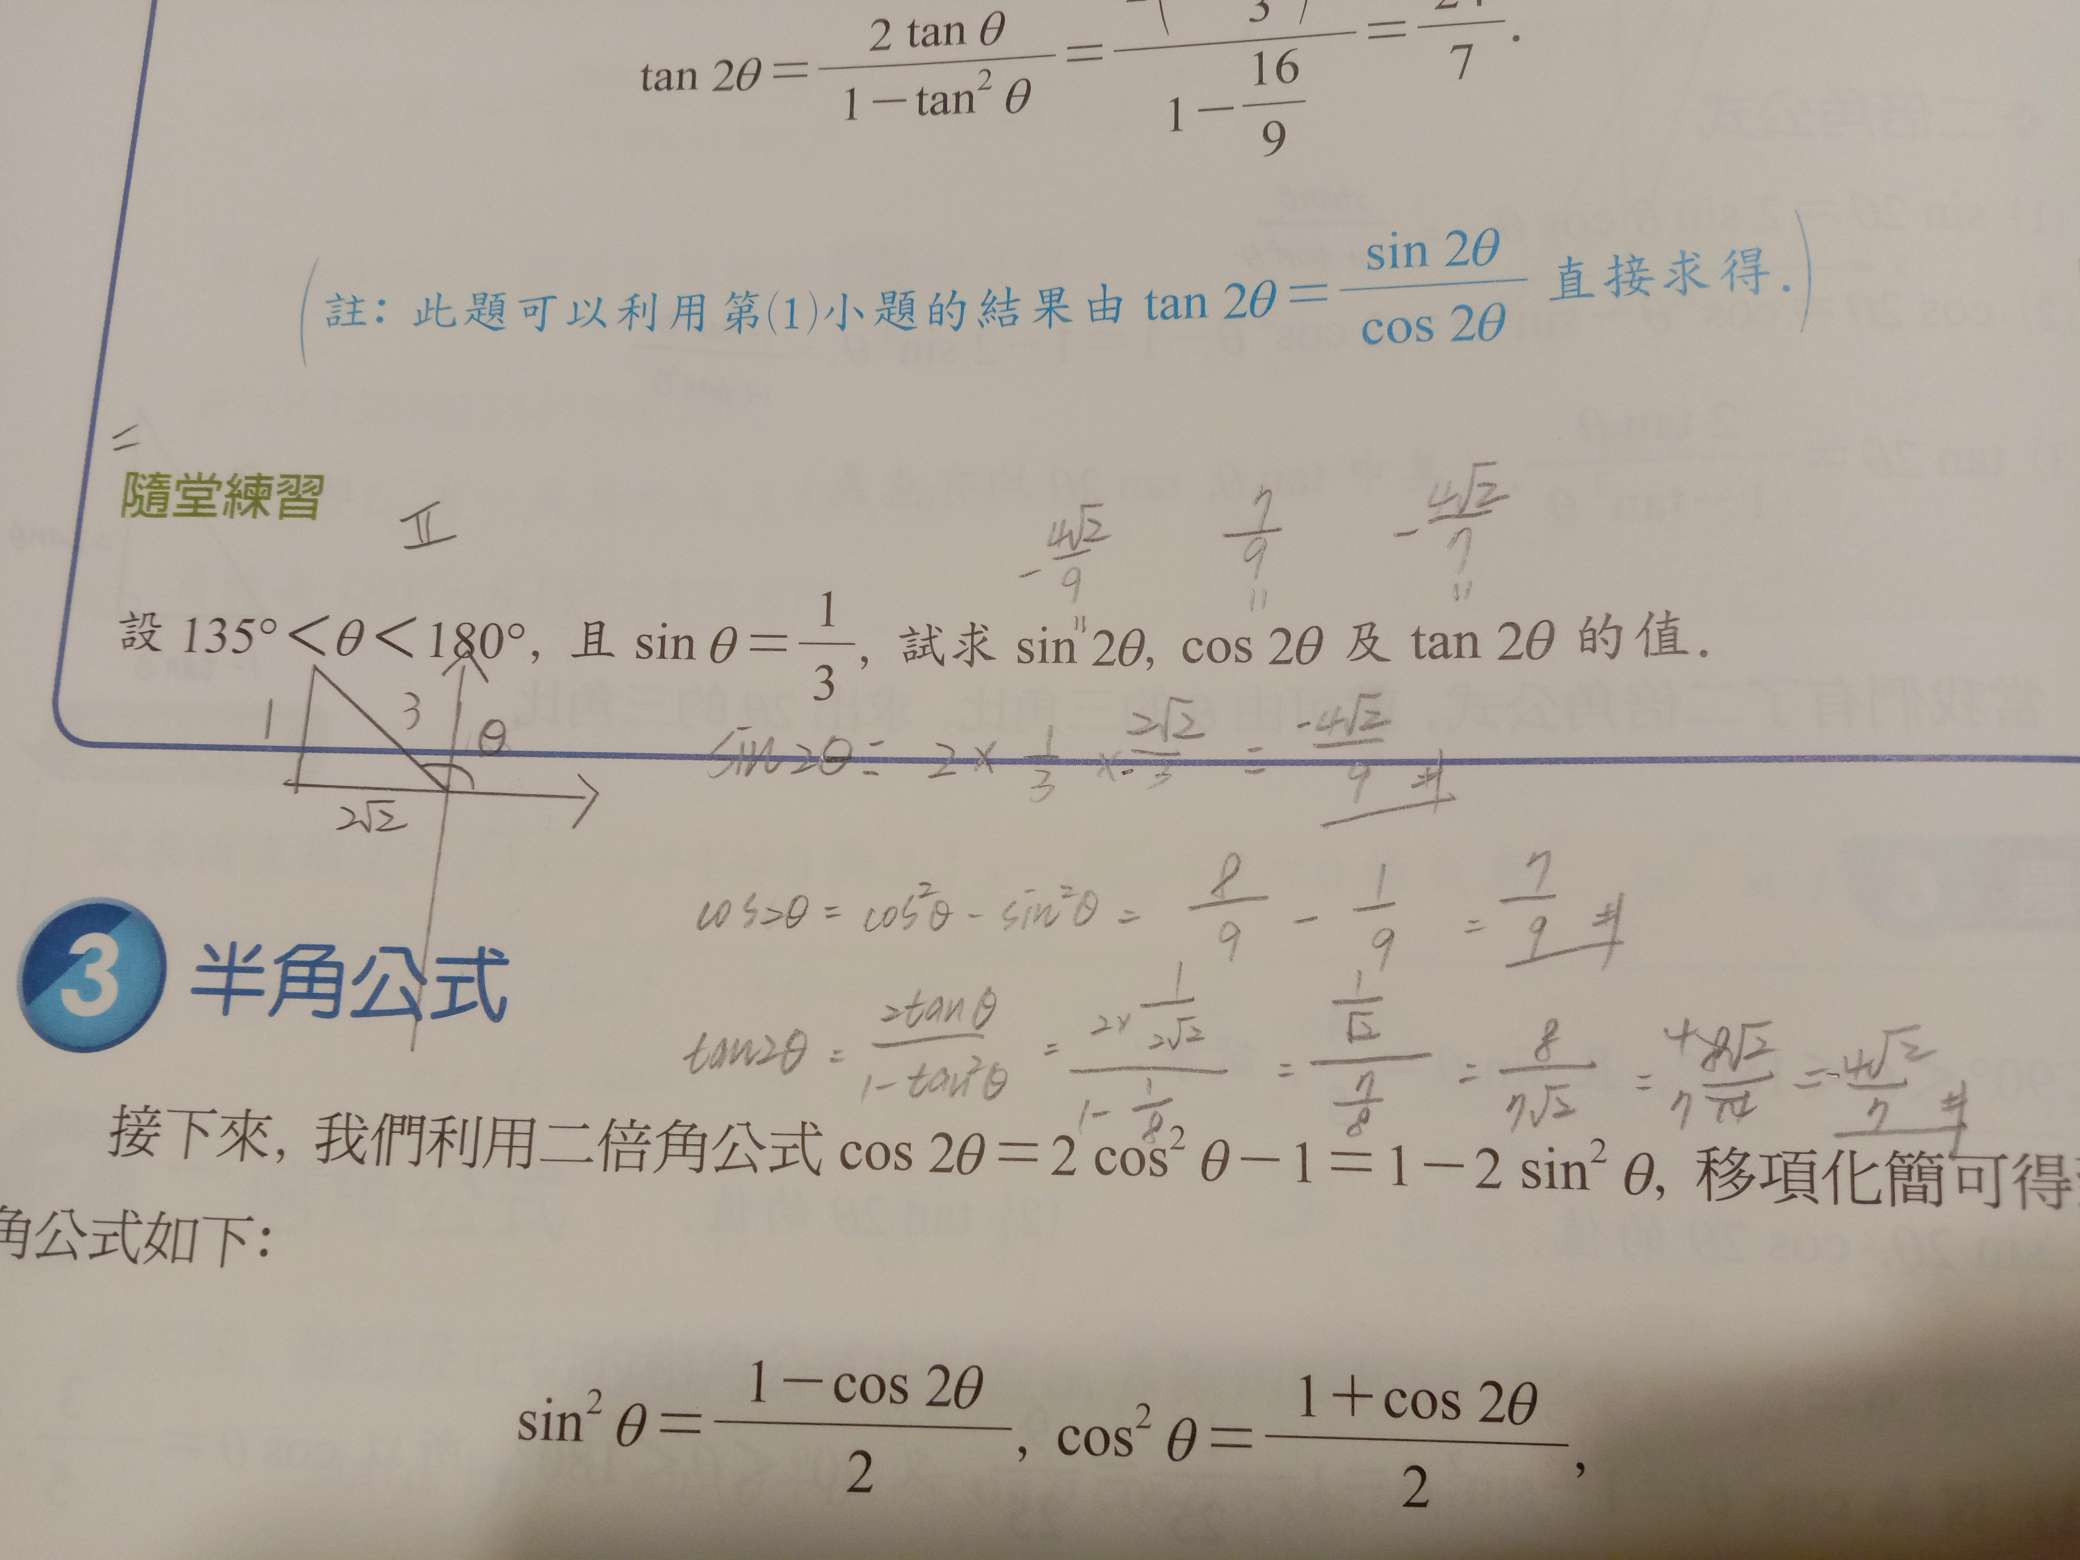 tan 2θ = 2 tan θ / (1 − tan² θ) = / (1 − 16/9) = /7 .
(註：此題可以利用第(1)小題的結果由 tan 2θ = sin 2θ / cos 2θ 直接求得．)
隨堂練習 II
-4√2/9 7/9 -4√2/7
設 135° < θ < 180°，且 sin θ = 1/3，試求 sin 2θ, cos 2θ 及 tan 2θ 的值．
1 3 θ 2√2
sin2θ = 2 × 1/3 × 2√2/-3 = -4√2/9 #
cos2θ = cos²θ - sin²θ = 8/9 - 1/9 = 7/9 #
tan2θ = 2tanθ / (1 - tan²θ) = (2 × 1/2√2) / (1 - 1/8) = (1/√2) / (7/8) = 8/7√2 = = -4√2/7 #
3 半角公式
接下來，我們利用二倍角公式 cos 2θ = 2 cos² θ − 1 = 1 − 2 sin² θ，移項化簡可得
角公式如下：
sin² θ = (1 − cos 2θ) / 2 , cos² θ = (1 + cos 2θ) / 2 ,